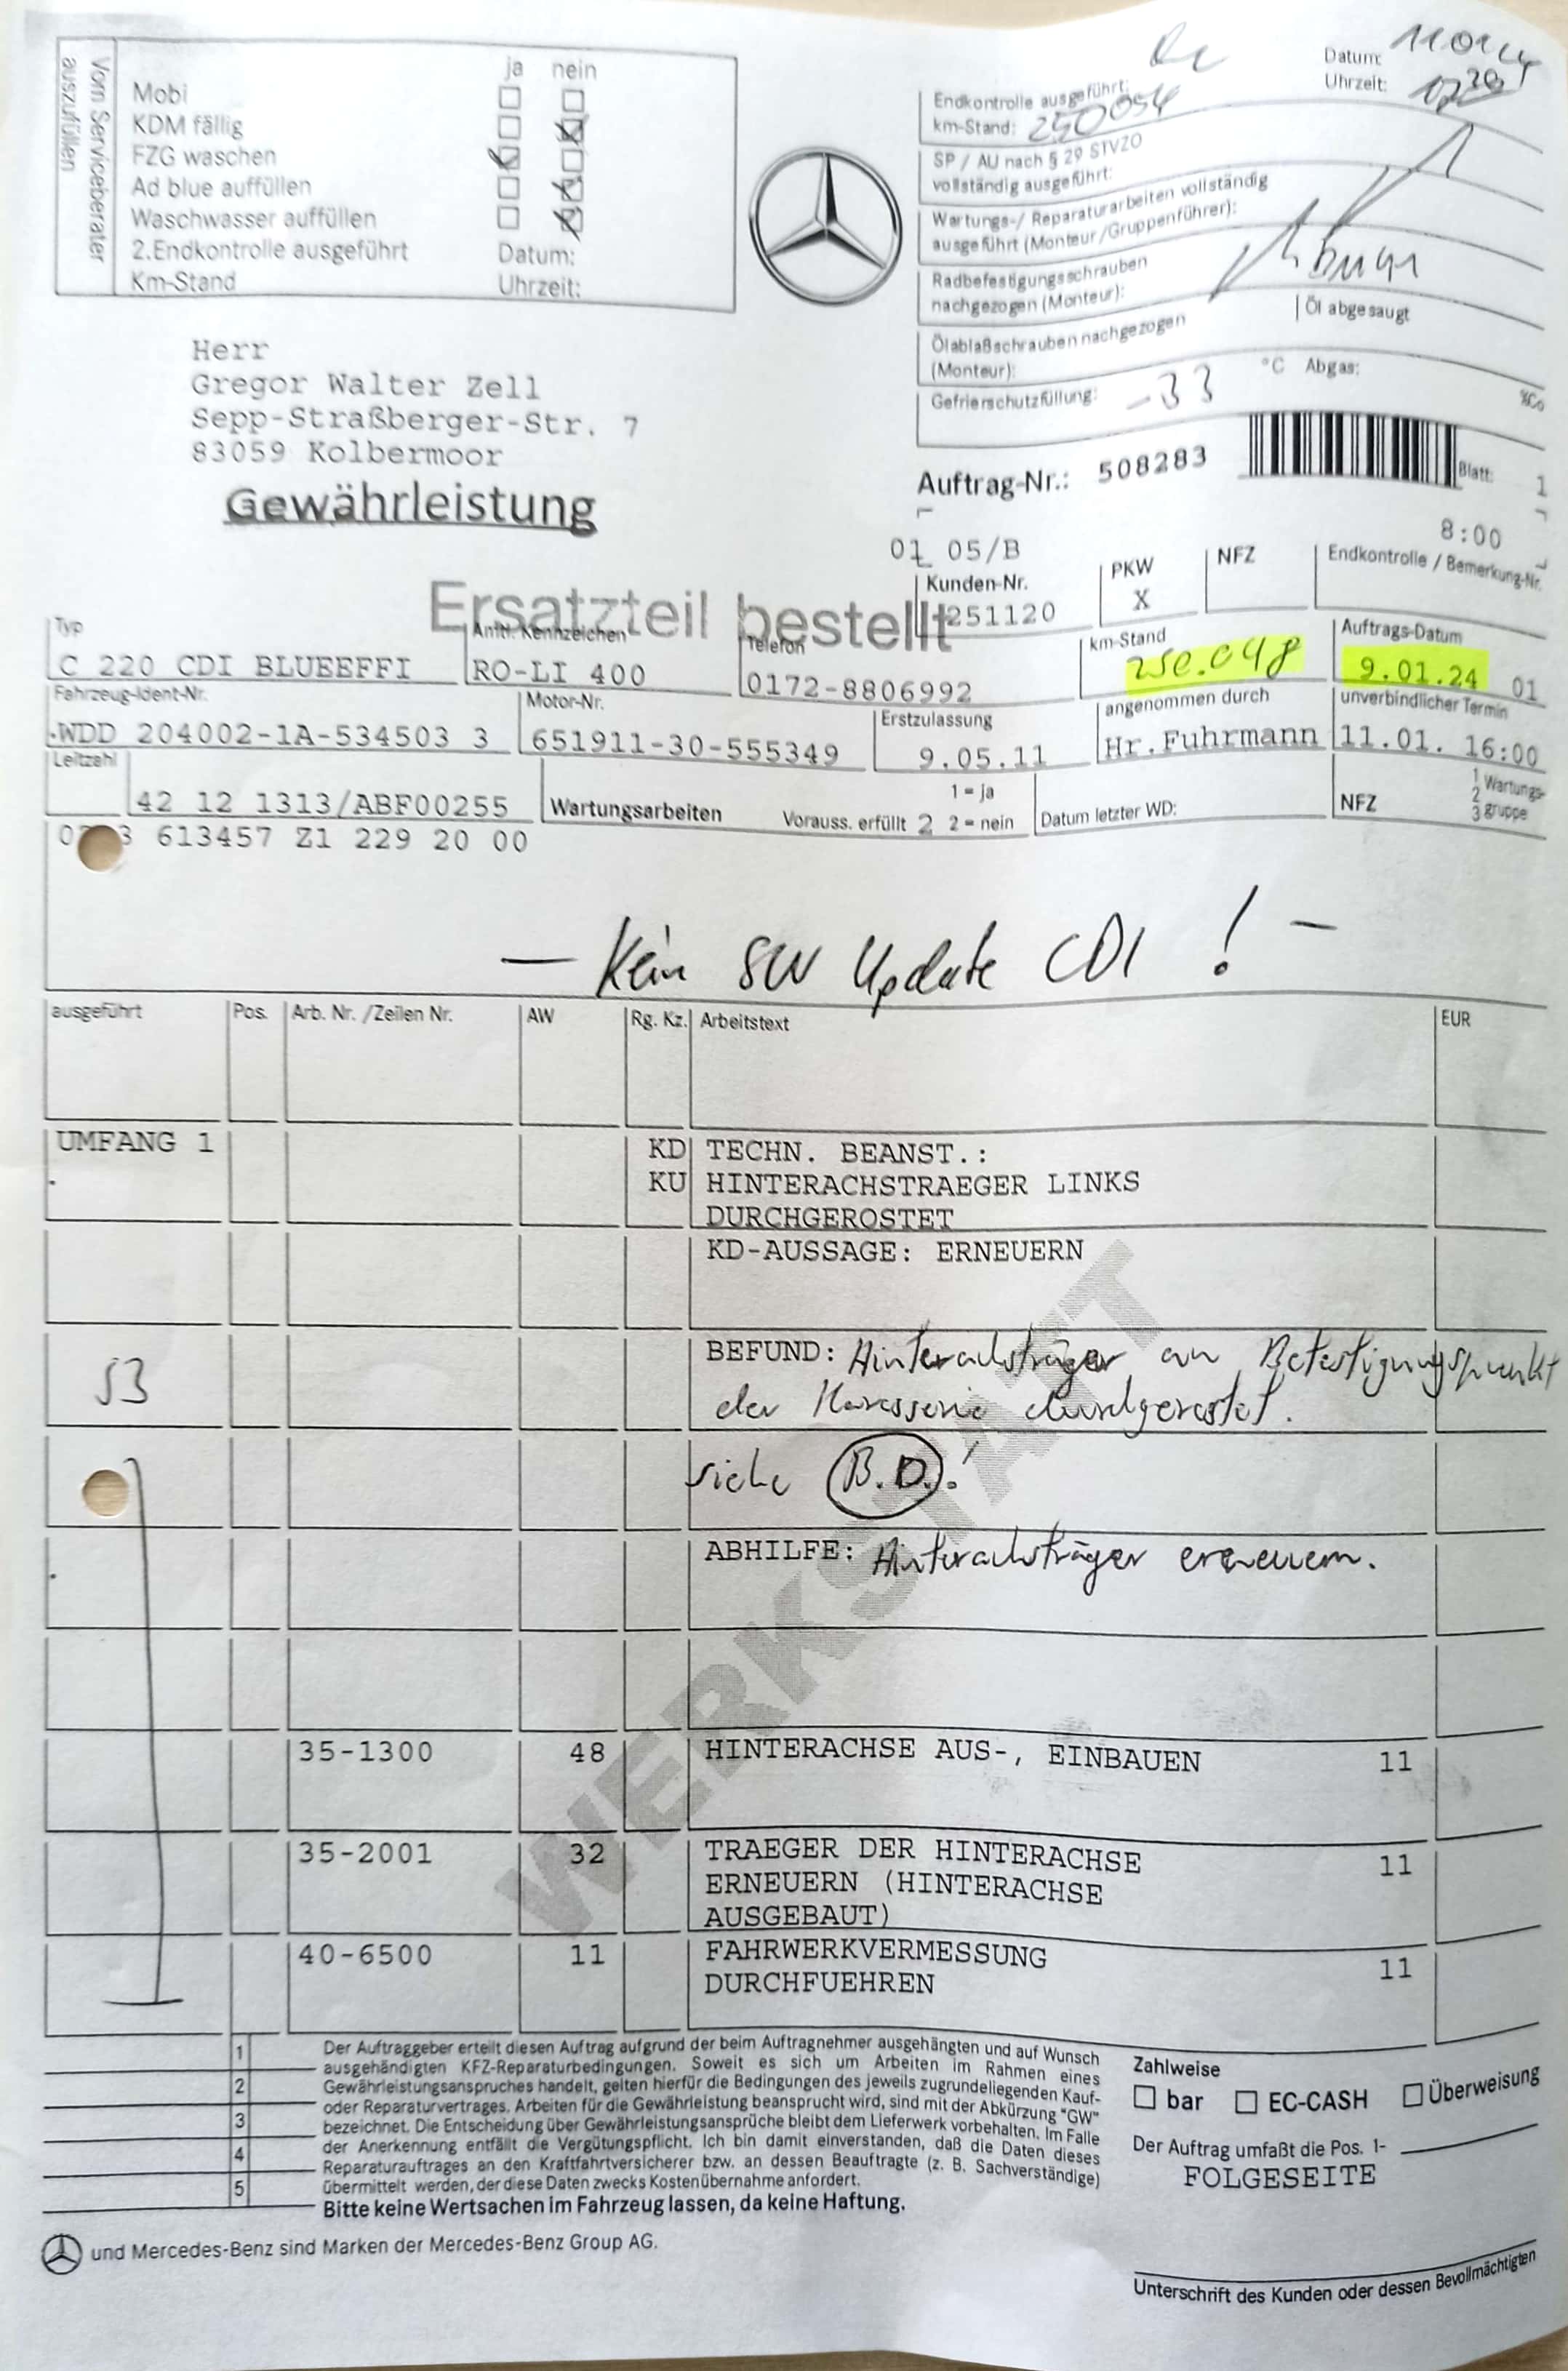 Vom Serviceberater
auszufüllen
ja nein
Mobi
KDM fällig
FZG waschen
Ad blue auffüllen
Waschwasser auffüllen
2.Endkontrolle ausgeführt Datum:
Km-Stand Uhrzeit:
Datum:
Uhrzeit:
Endkontrolle ausgeführt:
km-Stand: 250054
SP / AU nach § 29 STVZO
vollständig ausgeführt:
Wartungs-/ Reparaturarbeiten vollständig
ausgeführt (Monteur/Gruppenführer):
Radbefestigungsschrauben
nachgezogen (Monteur):
Öl abgesaugt
Ölablaßschrauben nachgezogen
(Monteur):
°C Abgas:
Gefrierschutzfüllung: -33
%Co
Herr
Gregor Walter Zell
Sepp-Straßberger-Str. 7
83059 Kolbermoor
Gewährleistung
Auftrag-Nr.: 508283 Blatt: 1
8:00
01 05/B
Ersatzteil bestellt
Kunden-Nr. PKW NFZ Endkontrolle / Bemerkung-Nr.
251120 X
Typ Amtl. Kennzeichen Telefon km-Stand Auftrags-Datum
C 220 CDI BLUEEFFI RO-LI 400 0172-8806992 250.048 9.01.24 01
Fahrzeug-Ident-Nr. Motor-Nr. Erstzulassung angenommen durch unverbindlicher Termin
WDD 204002-1A-534503 3 651911-30-555349 9.05.11 Hr.Fuhrmann 11.01. 16:00
Leitzahl
42 12 1313/ABF00255 Wartungsarbeiten Vorauss. erfüllt 2 1 = ja 2 = nein Datum letzter WD: NFZ 1 Wartungs-
2
3 gruppe
613457 Z1 229 20 00
— Kein SW Update CDI ! —
ausgeführt Pos. Arb. Nr. /Zeilen Nr. AW Rg. Kz. Arbeitstext EUR
UMFANG 1 KD TECHN. BEANST.:
KU HINTERACHSTRAEGER LINKS
DURCHGEROSTET
KD-AUSSAGE: ERNEUERN
53 BEFUND: Hinterachsträger am Befestigungspunkt
der Karosserie durchgerostet.
siehe B.D.!
ABHILFE: Hinterachsträger erneuern.
WERKSTATT
35-1300 48 HINTERACHSE AUS-, EINBAUEN 11
35-2001 32 TRAEGER DER HINTERACHSE 11
ERNEUERN (HINTERACHSE
AUSGEBAUT)
40-6500 11 FAHRWERKVERMESSUNG 11
DURCHFUEHREN
1
2
3
4
5
Der Auftraggeber erteilt diesen Auftrag aufgrund der beim Auftragnehmer ausgehängten und auf Wunsch
ausgehändigten KFZ-Reparaturbedingungen. Soweit es sich um Arbeiten im Rahmen eines
Gewährleistungsanspruches handelt, gelten hierfür die Bedingungen des jeweils zugrundeliegenden Kauf-
oder Reparaturvertrages. Arbeiten für die Gewährleistung beansprucht wird, sind mit der Abkürzung "GW"
bezeichnet. Die Entscheidung über Gewährleistungsansprüche bleibt dem Lieferwerk vorbehalten. Im Falle
der Anerkennung entfällt die Vergütungspflicht. Ich bin damit einverstanden, daß die Daten dieses
Reparaturauftrages an den Kraftfahrtversicherer bzw. an dessen Beauftragte (z. B. Sachverständige)
übermittelt werden, der diese Daten zwecks Kostenübernahme anfordert.
Bitte keine Wertsachen im Fahrzeug lassen, da keine Haftung.
Zahlweise
bar EC-CASH Überweisung
Der Auftrag umfaßt die Pos. 1-
FOLGESEITE
und Mercedes-Benz sind Marken der Mercedes-Benz Group AG.
Unterschrift des Kunden oder dessen Bevollmächtigten